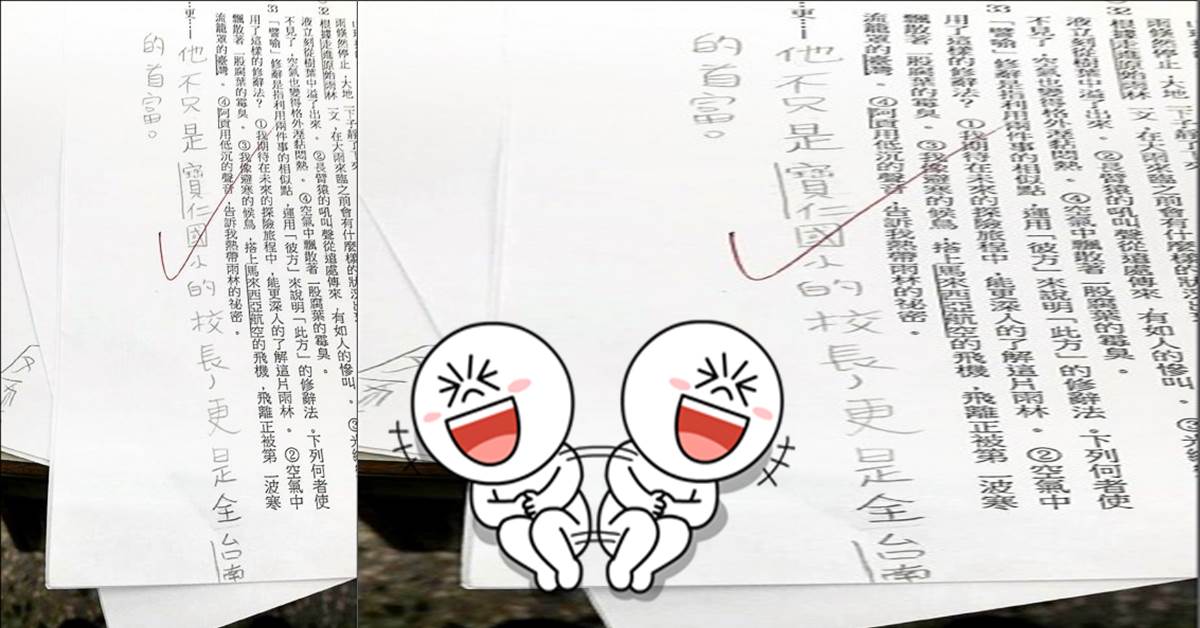 雨倏然停止,大地一下子靜了下來
32 根據走進原始雨林一文,在大雨來臨之前會有什麼樣的狀況
液立刻從樹葉中溢了出來。②長臂猿的吼叫聲從遠處傳來,有如人的慘叫。③
不見了,空氣也變得格外溼黏悶熱。④空氣中飄散著一股腐葉的霉臭。
33 「譬喻」修辭是指利用兩件事的相似點,運用「彼方」來說明「此方」的修辭法。下列何者使
用了這樣的修辭法?①我期待在未來的探險旅程中,能更深入的了解這片雨林。②空氣中
飄散著一股腐葉的霉臭。③我像避寒的候鳥,搭上馬來西亞航空的飛機,飛離正被第一波寒
流籠罩的臺灣。④阿貢用低沉的聲音,告訴我熱帶雨林的祕密。
更……他不只是寶仁國小的校長,更是全台南
的首富。
雨倏然停止,大地一下子靜了下來
32 根據走進原始雨林一文,在大雨來臨之前會有什麼樣的狀況
液立刻從樹葉中溢了出來。②長臂猿的吼叫聲從遠處傳來,有如人的慘叫。③
不見了,空氣也變得格外溼黏悶熱。④空氣中飄散著一股腐葉的霉臭。
33 「譬喻」修辭是指利用兩件事的相似點,運用「彼方」來說明「此方」的修辭法。下列何者使
用了這樣的修辭法?①我期待在未來的探險旅程中,能更深入的了解這片雨林。②空氣中
飄散著一股腐葉的霉臭。③我像避寒的候鳥,搭上馬來西亞航空的飛機,飛離正被第一波寒
流籠罩的臺灣。④阿貢用低沉的聲音,告訴我熱帶雨林的祕密。
更……他不只是寶仁國小的校長,更是全台南
的首富。